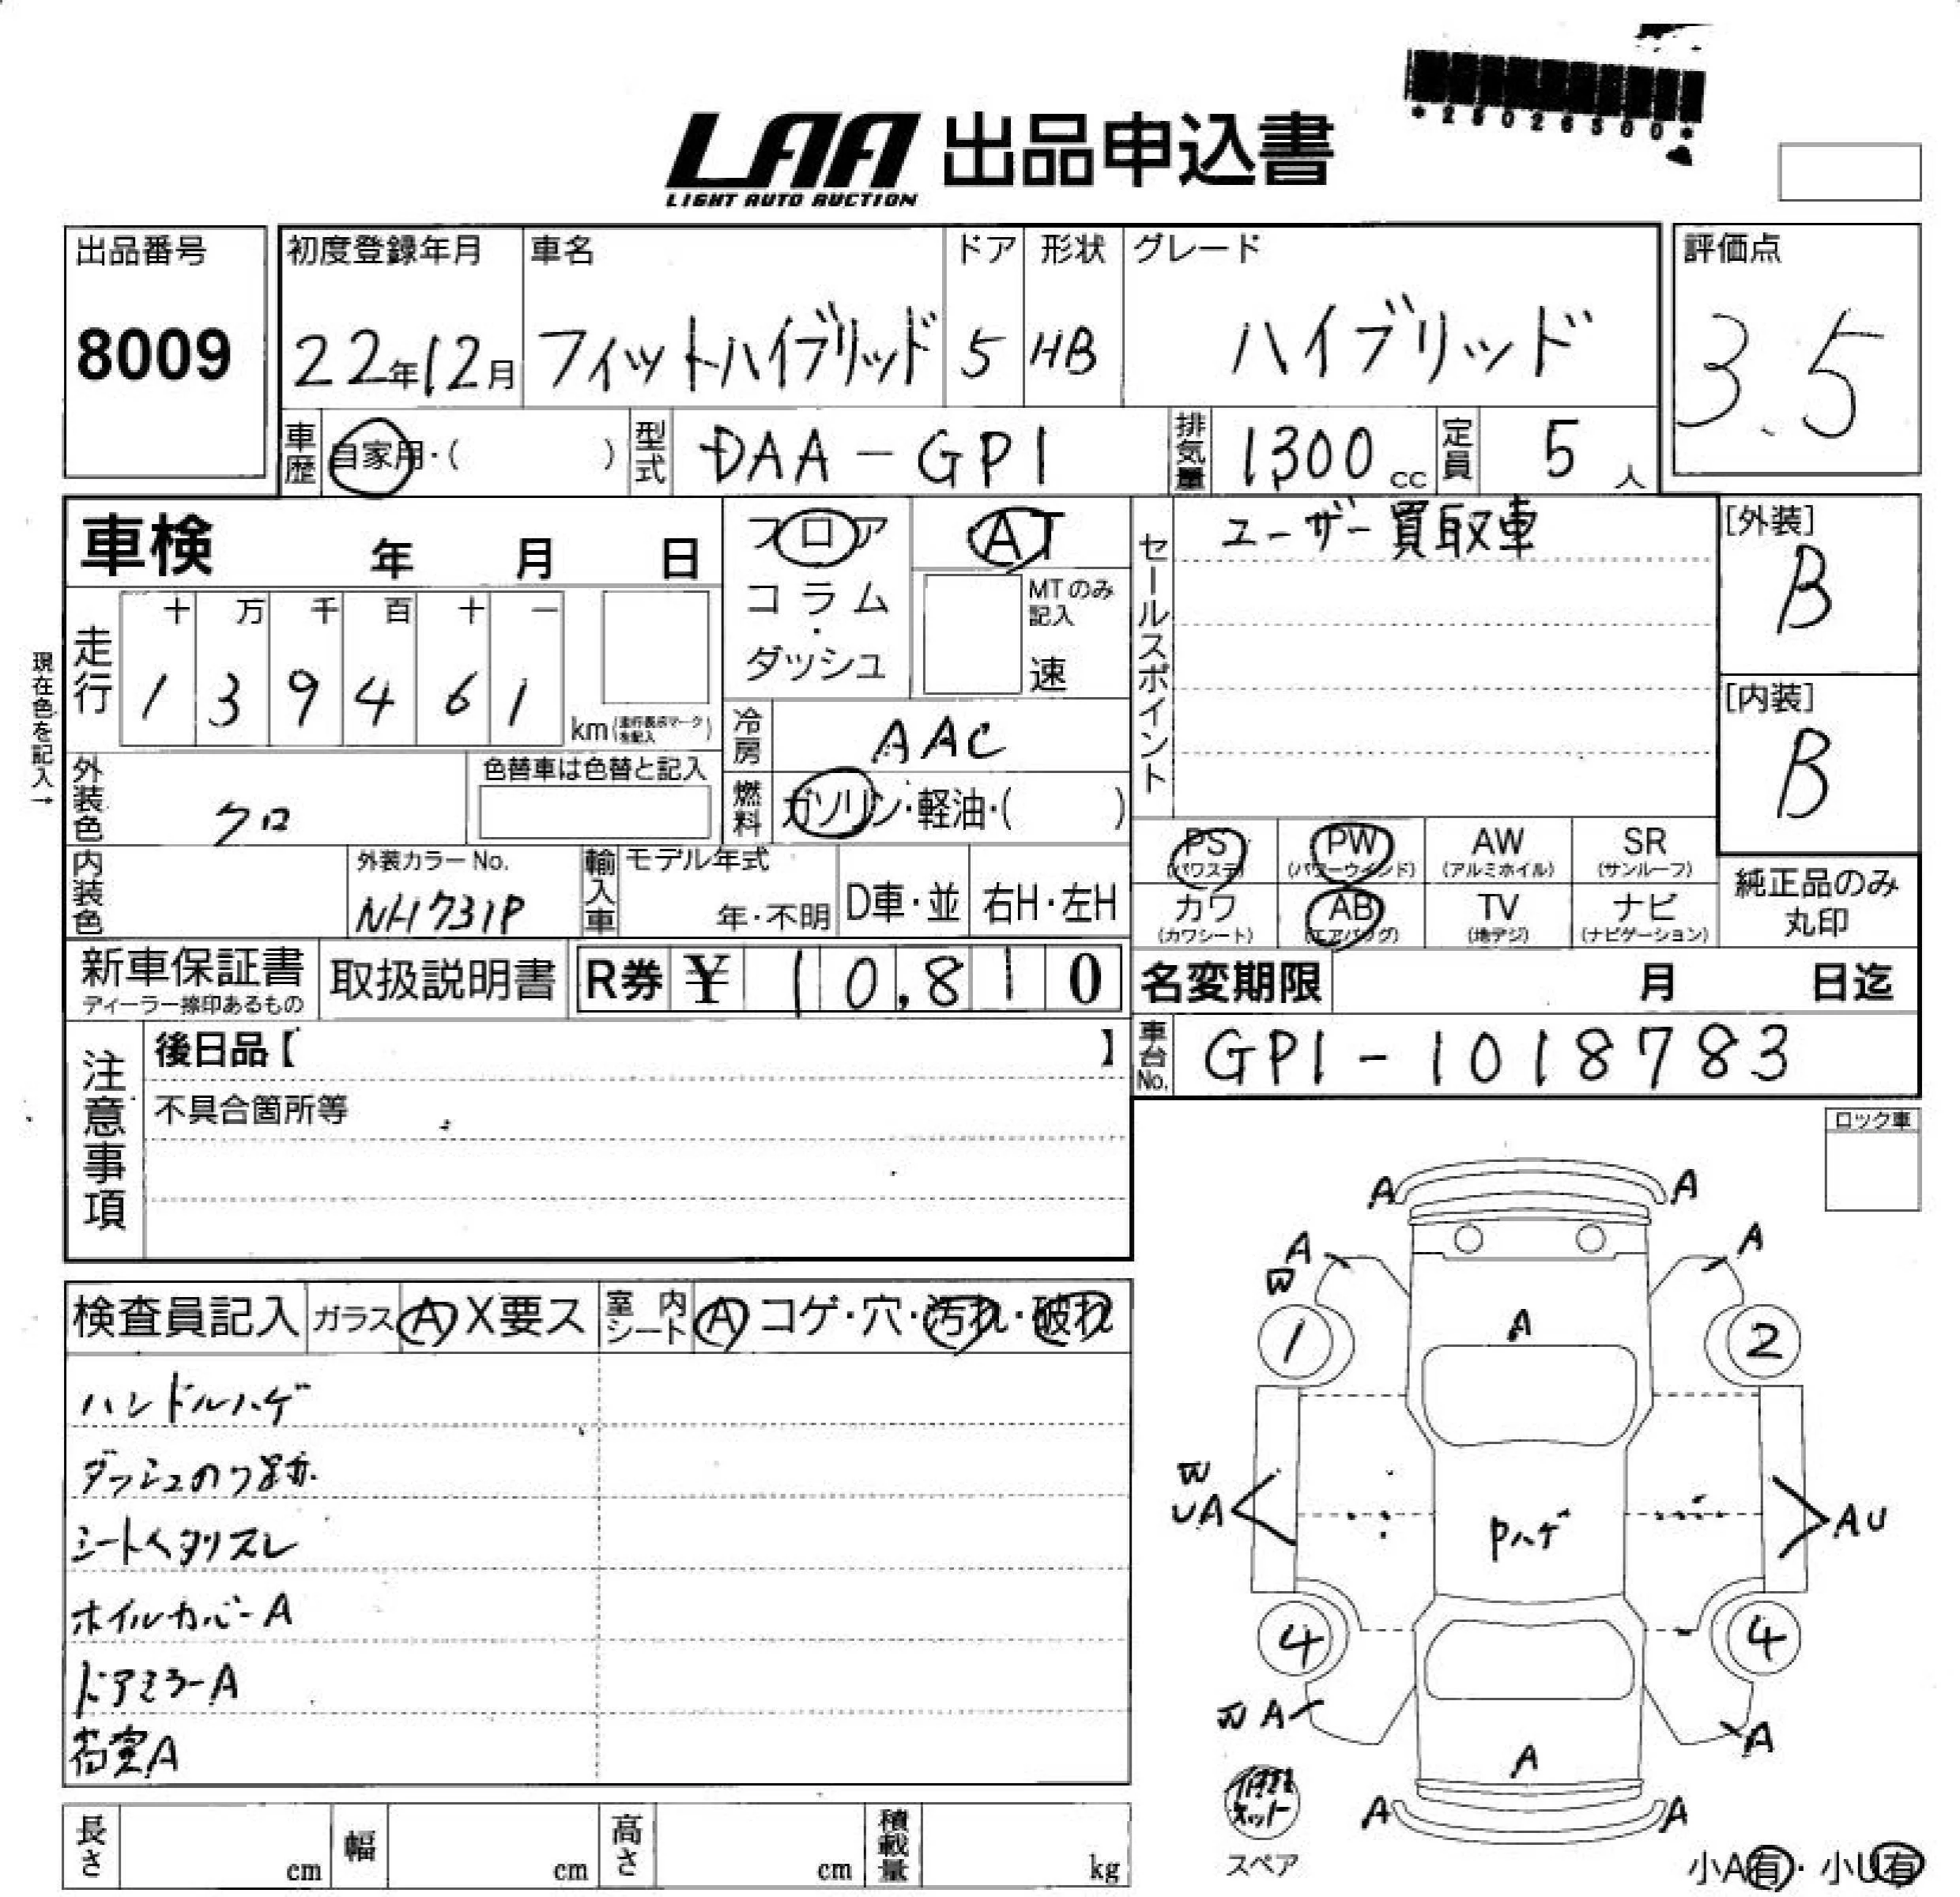 *25026500*
LAA 出品申込書
LIGHT AUTO AUCTION
出品番号 8009
初度登録年月 22年12月
車名 フィットハイブリッド
ドア 5
形状 HB
グレード ハイブリッド
評価点 3.5
車歴 自家用・( )
型式 DAA-GP1
排気量 1300 cc
定員 5 人
車検 年 月 日
フロア コラム・ダッシュ
AT
MTのみ記入 速
セールスポイント ユーザー買取車
[外装] B
[内装] B
現在色を記入→
走行 十 万 千 百 十 一
1 3 9 4 6 1 km(走行表示マークを記入)
冷房 AAC
燃料 ガソリン・軽油・( )
外装色 クロ
色替車は色替と記入
内装色
外装カラーNo. NH731P
輸入車 モデル年式 年・不明 D車・並 右H・左H
PS (パワステ) PW (パワーウインド) AW (アルミホイル) SR (サンルーフ)
カワ (カワシート) AB (エアバッグ) TV (地デジ) ナビ (ナビゲーション)
純正品のみ丸印
新車保証書 ディーラー捺印あるもの
取扱説明書
R券 ¥ 10,810
名変期限 月 日迄
車台No. GP1-1018783
注意事項
後日品【 】
不具合箇所等
ロック車
検査員記入 ガラス A X要ス 室内シート A コゲ・穴・汚れ・破れ
ハンドルハゲ
ダッシュのり跡
シートヘタリスレ
ホイルカバーA
ドアミラーA
荷室A
A A
A A
W
1 A 2
W
UA AU
Pハゲ
4 4
W A A
A
A A
修理キット
スペア
小A有・小U有
長さ cm 幅 cm 高さ cm 積載量 kg